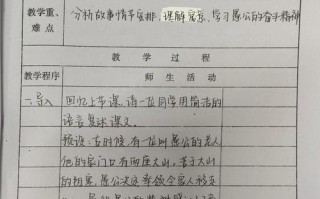 教学重、难点
分析故事情节安排，理解寓意，学习愚公的奋斗精神
教学过程
教学程序
师生活动
一.导入
回忆上节课，请一位同学用简洁的
语言复述课文。
预设：古时候，有一位叫愚公的老人
他的家门口有两座大山，苦于大山
的阻塞，愚公决定带领全家人移走